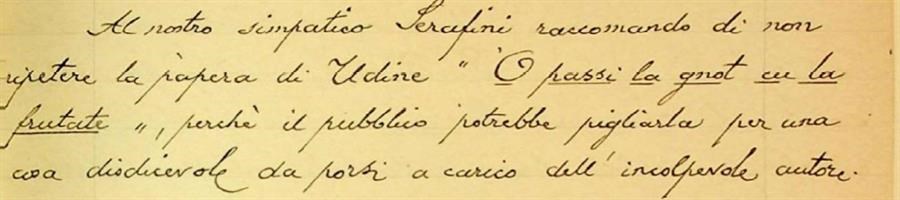 Al nostro simpatico Serafini raccomando di non
ripetere la papera di Udine " O passi la gnot cu la
frutate ", perchè il pubblico potrebbe pigliarla per una
cosa disdicevole da porsi a carico dell' incolpevole autore.